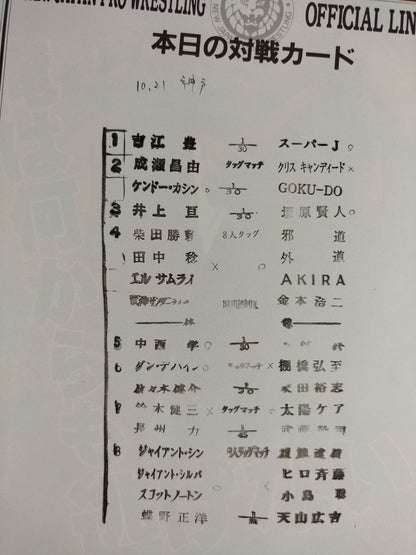 NEW JAPAN PRO WRESTLING
OFFICIAL LIN
本日の対戦カード
10.21
1 吉江 豊 1/30 スーパーJ ○
2 成瀬昌由 タッグマッチ クリス キャンディード ×
ケンドー・カシン ○ 1/30 GOKU-DO
3 井上 亘 1/30 垣原賢人 ○
4 柴田勝頼 8人タッグ 邪 道
田中 稔 外 道
エル サムライ × ○ AKIRA
金本浩二
休 憩
5 中西 学 ○ 1/30
6 ダン・デハイン ○ × 棚橋弘至
佐々木健介 1/30 永田裕志
7 鈴木健三 × タッグマッチ ○ 太陽ケア
長州 力 1/45 武藤敬司
8 ジャイアント・シン 8人タッグマッチ
ジャイアント・シルバ ヒロ斉藤
スコットノートン ○ × 小島 聡
蝶野正洋 天山広吉